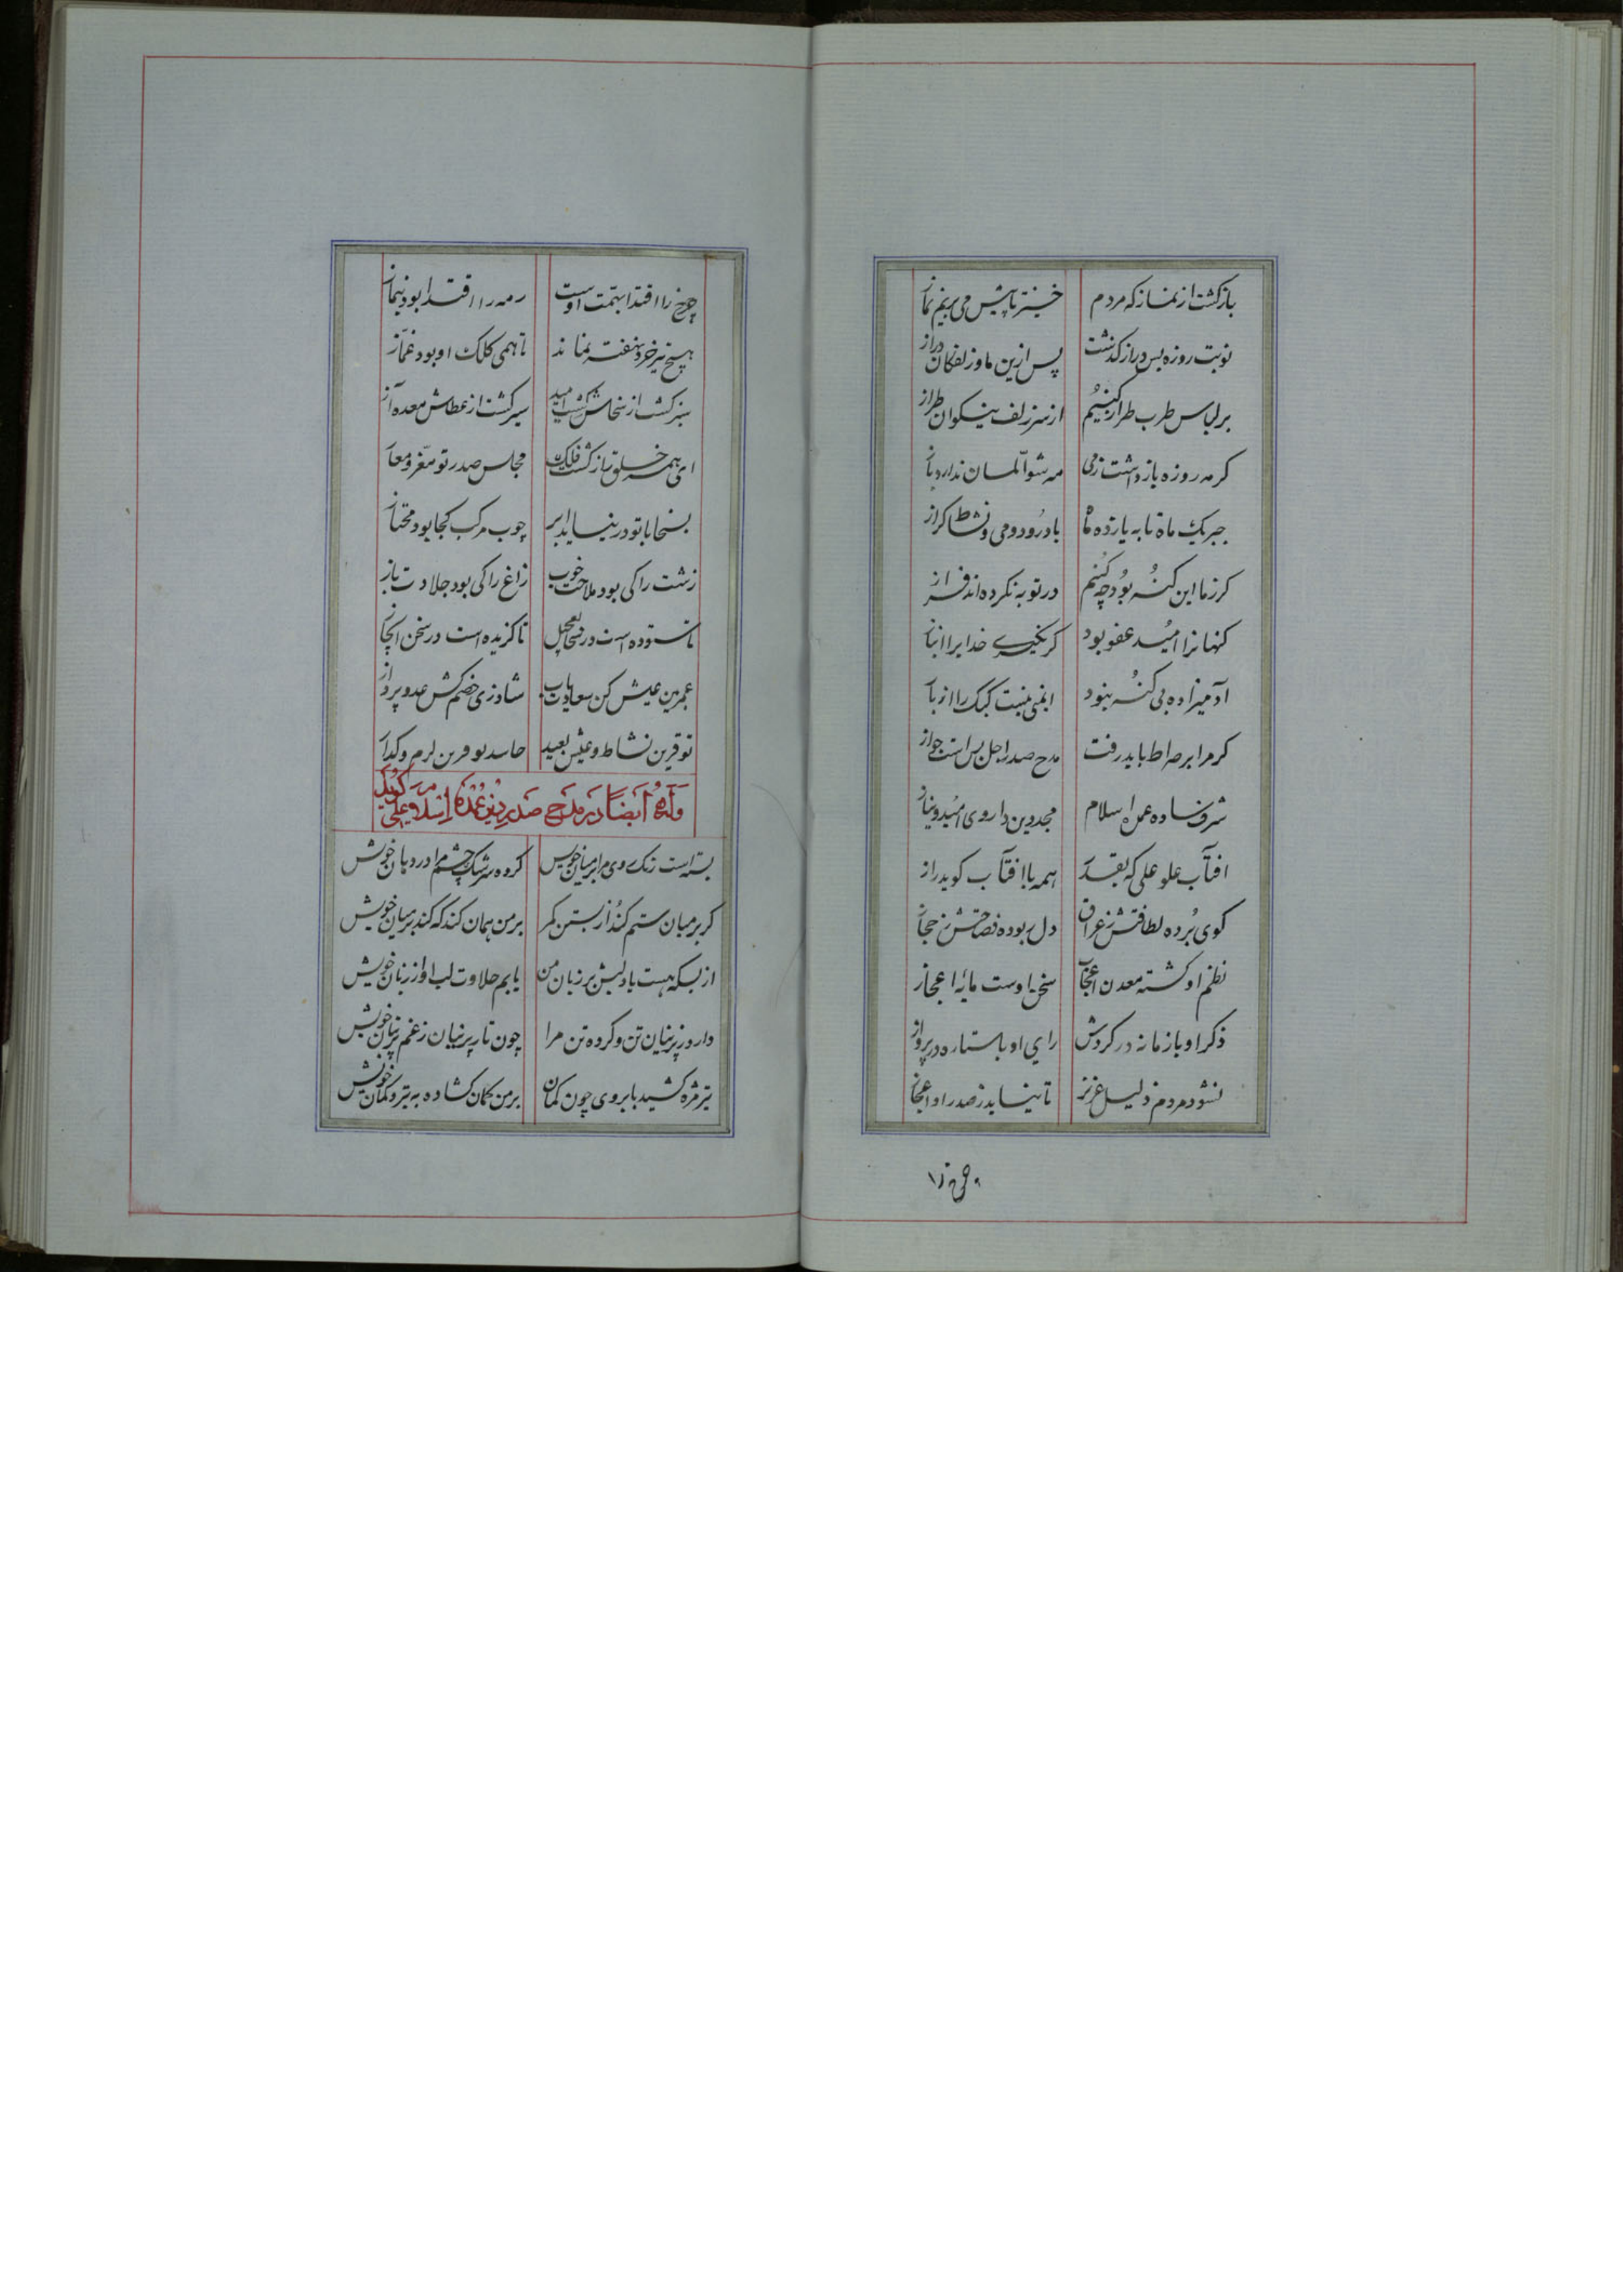 بازگشت از نماز که مردم خیز تا پیش می بریم نماز
نوبت روزه بس دراز گذشت پس ازین ما و زلفکان دراز
بر لباس طرب طراز کنیم از سر زلف نیکوان طراز
گر مه روزه باز داشت ز می مه شوال مان ندارد باز
جبر یک ماه تا به یازده ماه باد رود و می و نشاط گراز
گر ز ما این گنه بود چکنیم در توبه نکرده اند فراز
گنهانرا امید عفو بود گر نگیری خدایرا انباز
آدمیزاده بی گنه نبود ایمنی نیست کبک را از باز
گر مرا بر صراط باید رفت مدح صدر اجل بس است جواز
شرف ساده عمده اسلام مجد دین داروی امید و نیاز
افتاب علو علی که بقدر همه با افتاب گوید راز
گوی برده لطافتش ز عراق دل ربوده فصاحتش ز حجاز
نظم او گشته معدن اعجاب سخن اوست مایه اعجاز
ذکر او با زمانه در گردش رای او با ستاره در پرواز
نشود مردم ذلیل عزیز تا نیابد ز صدر او اعجاز
چرخ را اقتدا بهمت اوست رمه را اقتدا بود بنهاز
هیچ سر خرد نهفته نماند تا همی کلک او بود غماز
سبز گشت از سخاش کشت امید سیر گشت از عطاش معده آز
ای همه خلق باز گشت فلک مجلس صدر تو مفر و معاذ
بسخا با تو در نیاید ابر چوب مرکب کجا بود متحاز
زشت را کی بود ملاحت خوب زاغ را کی بود جلادت باز
تا ستوده است در سخا تعجیل تا گزیده است در سخن ایجاز
عمر بین عیش کن سعادت یاب شاد زی خصم کش عدو پرداز
تو قرین نشاط و عیش بعید حاسد تو قرین کرم و گداز
وله ایضا در مدح صدر دین عمده اسلام علی گوید
بسته است زنگ روی مرا بر میان خویس کرده سرشک چشم مرا در دهان خویش
گر بر میان ستم کند از بستن کمر بر من همان کند که کند بر میان خویش
از بسکه هست یاد لبش بر زبان من یابم حلاوت لب او از زبان خویش
دارد ز پرنیان تن و کرده تن مرا چون تار پرنیان ز غم پرنیان خویش
تیر مژه کشید بابروی چون کمان بر من کمان کشاده به تیر و کمان خویش